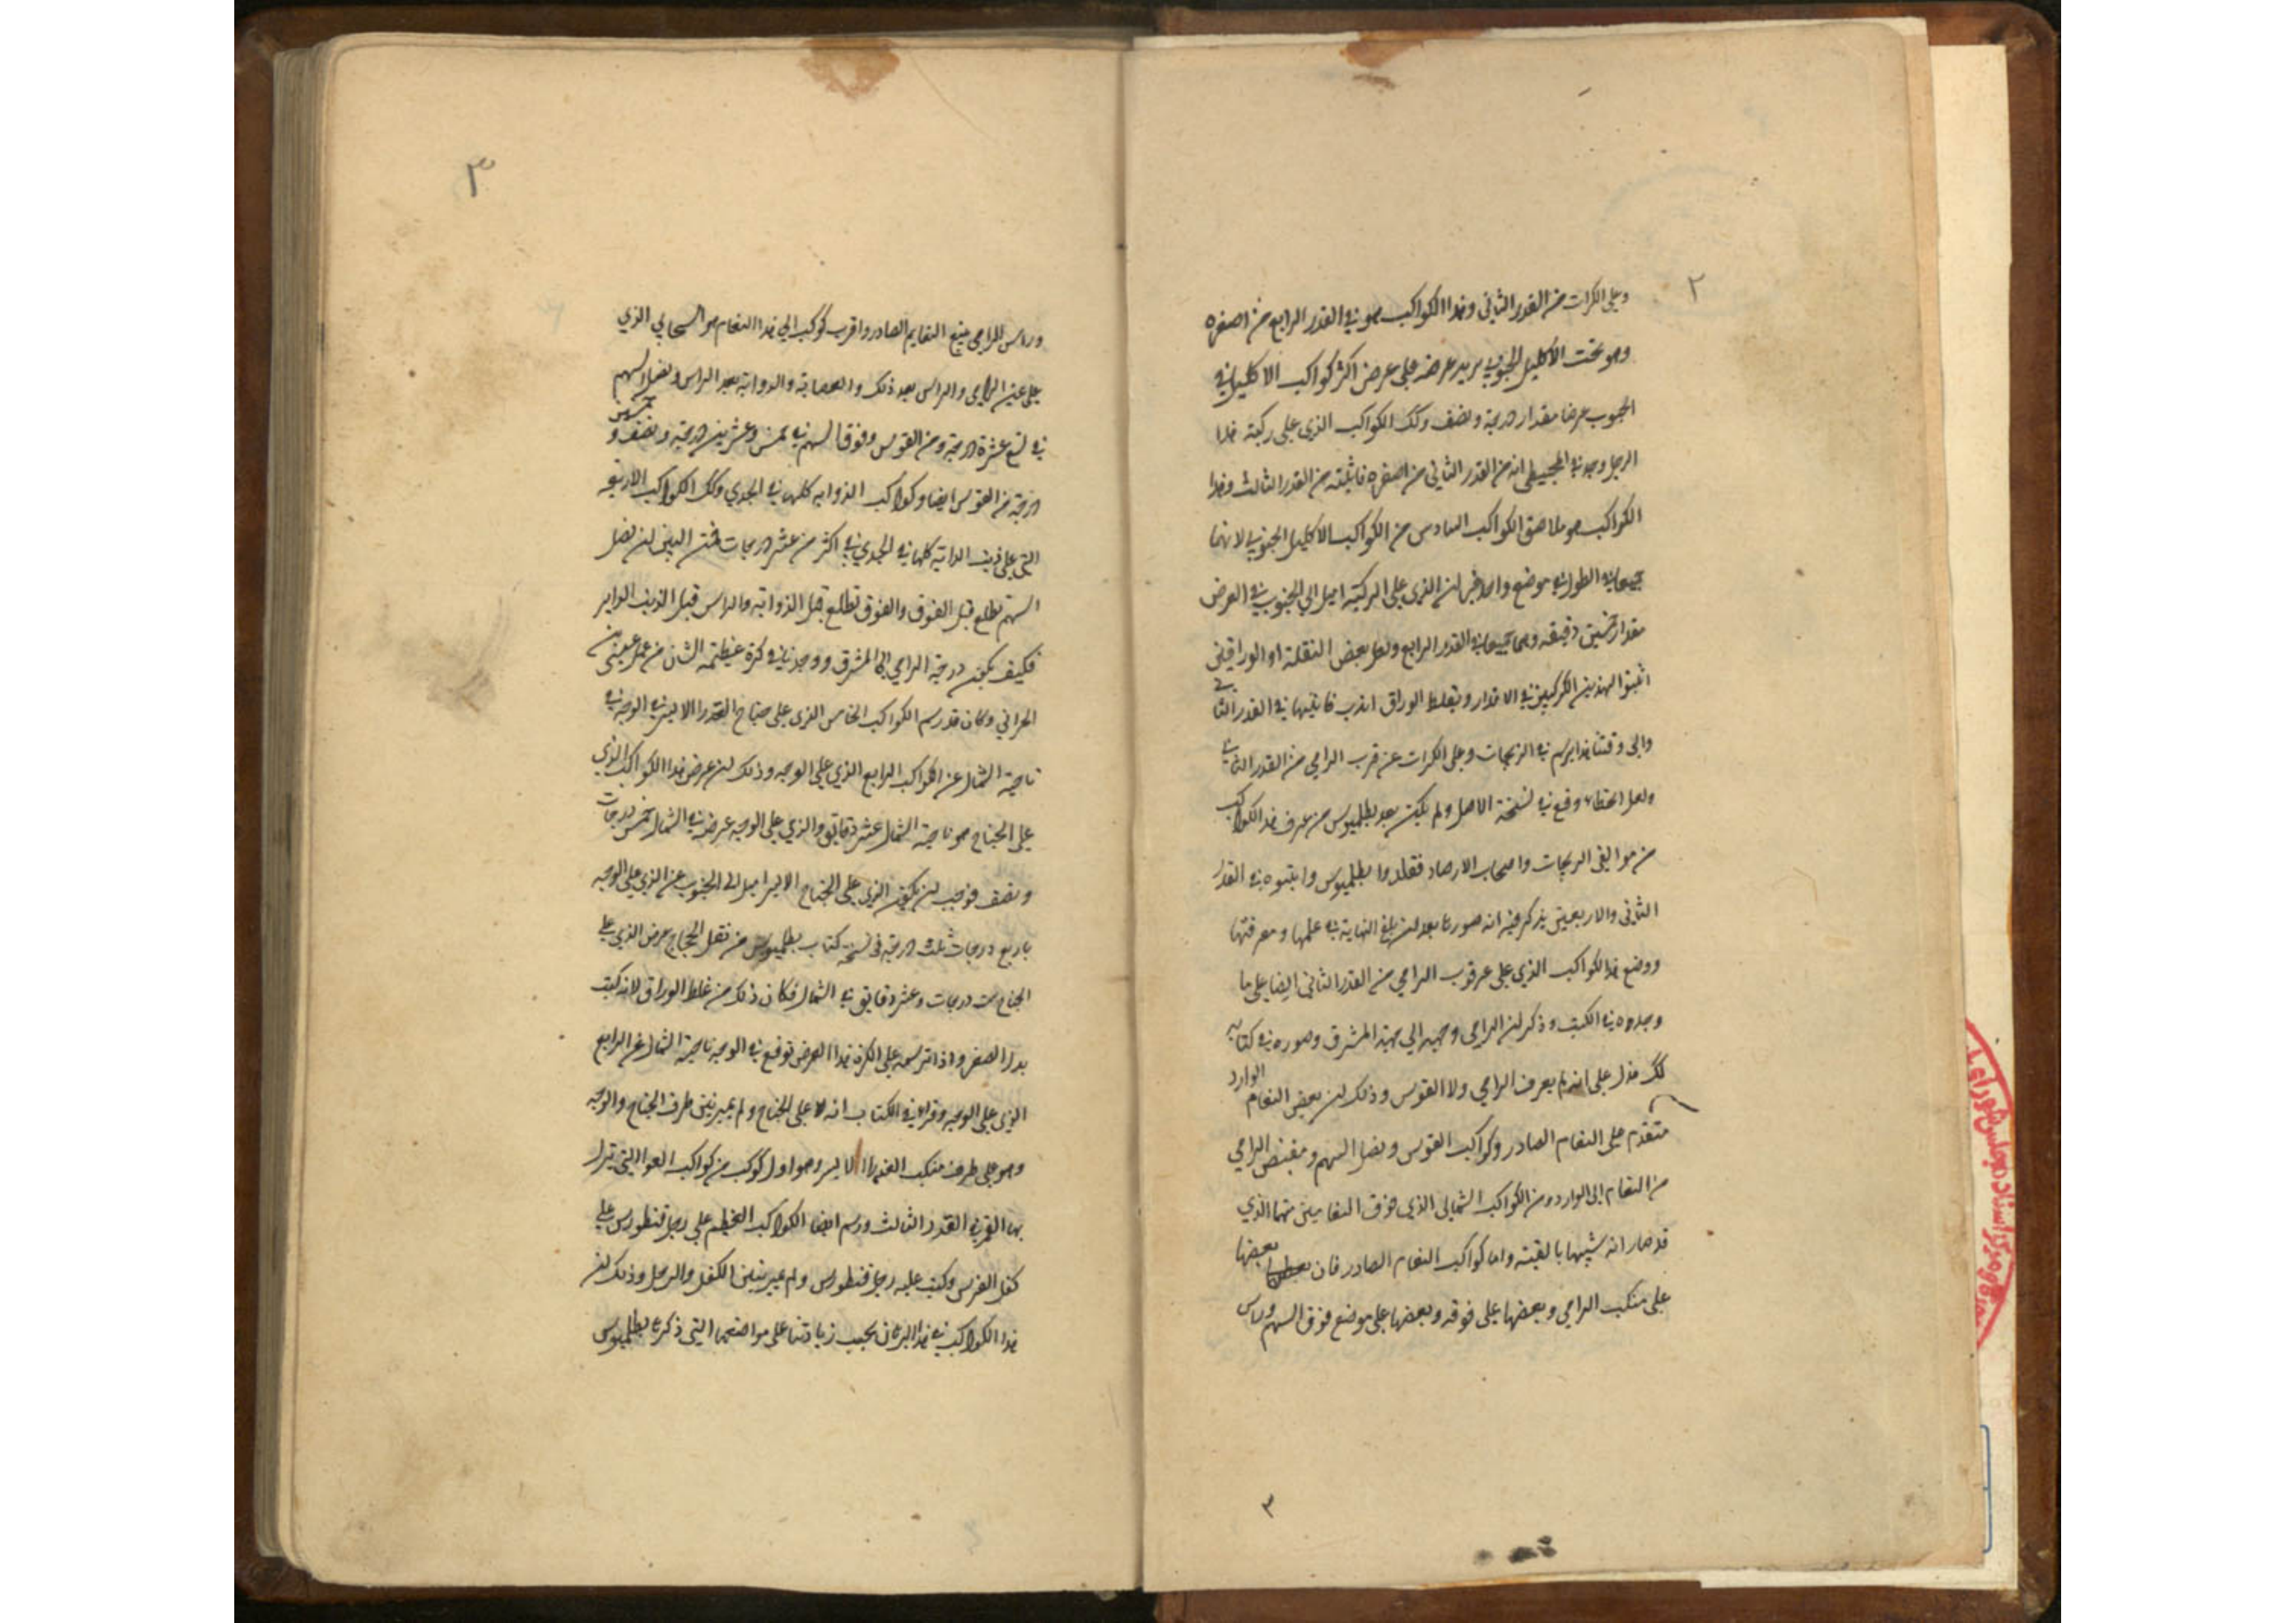 ٢
وعلى الكرات من القدر الثاني وهذا الكواكب هو في القدر الرابع من اصغره
وهو تحت الاكليل الجنوبي يزيد عرضه على عرض اكثر كواكب الاكليل في
الجنوب عرضا مقدار درجة ونصف وكك الكواكب الذي على ركبته هذا
الرجل وجد في المجسطي انه من القدر الثاني من اصغره فاثبته من القدر الثالث وهذا
الكواكب هو ملاصق الكواكب السادس من الكواكب الاكليل الجنوبي لانهما
جميعا في الطول في موضع واحد غير ان الذي على الركبة اميل الي الجنوب في العرض
مقدار خمسين دقيقه وهما جميعا في القدر الرابع ولعل بعض النقلة او الوراقين
اثبتوا لهذين الكوكبين في الاقدار وبغلط الوراق فاثبتها في القدر الثاني
والى وقتنا هذا يرسم في الزيجات وعلى الكرات عن قرب الرامي من القدر الثاني
ولعل الخطاء وقع في نسخة الاصل ولم يكن بعد بطلميوس من عرف هذا الكواكب
من موالفى الزيجات واصحاب الارصاد فقلدوا بطلميوس واثبتوه في القدر
الثاني والاربعين يذكر فيه انه صورها بعد ان بلغ النهاية في علمها ومعرفتها
ووضع هذا لكواكب الذي على عرقوب الرامي من القدر الثاني ايضا على ما
وجدوه في الكتب وذكر ان الرامي وجهه الي جهة المشرق وصوره في كتابه
كك فدل على انه لم يعرف الرامي ولا القوس وذلك ان بعض النعام الوارد
متقدم على النعام الصادر وكواكب القوس ونصل السهم ومقبض الرامي
من النعام الى الوارد ومن الكواكب الشمالي الذي فوق النعامين منهما الذي
قد صار انه شبهها بالقبة واما كواكب النعام الصادر فان بعضها
على منكب الرامي وبعضها على فوقه وبعضها على موضع فوق السهم وراس
٣
٣
وراس الرامي يتبع النعايم الصادر واقرب كوكب الي هذا النعام هو السحابي الذي
على عين الرامي والراس بعد ذلك والعصابة والذوابة بعد الراس ونصل السهم
في تسع عشرة درجة ومن القوس وفوق السهم في خمس وعشرين درجه ونصف وخمسين
درجة من القوس ايضا وكواكب الذوابه كلها في الجدي وكك الكواكب الاربعة
التي على ذنب الدابة كلها في الجدي في اكثر من عشر درجات فمن البين ان نصل
السهم تطلع قبل الفوق والفوق تطلع قبل الذوابة والراس قبل الذنب الدابر
فكيف يكون درجة الرامي الى المشرق ووجدنا في كرة عظيمة الشان من عمل بعض من
الحراني وكان قد رسم الكواكب الخامس الذي على جناح العذرا الايسر في الوجه في
ناحية الشمال عن الكواكب الرابع الذي على الوجه وذلك ان عرض هذا الكواكب الذي
على الجناح هو ناحية الشمال عشر دقايق والذي على الوجه عرضه في الشمال خمس درجات
ونصف فوجب ان يكون الذي على الجناح الايسر اميل الى الجنوب عن الذي على الوجه
باربع درجات ثلث درجة في نسخة كتاب بطلميوس من نقل الحجاج عرض الذي على
الجناح ست درجات وعشر دقايق في الشمال فكان ذلك من غلط الوراق لانه كتب
بدل الصفر واذا ترسمه على الكرة هذا العرض توقع في الوجه ناحية الشمال عن الرابع
الذي على الوجه وقرا في الكتاب انه على الجناح ولم يميز بين طرف الجناح والوجه
وهو على طرف منكب العذراء الايسر وهو اول كوكب من كواكب العوا التي تنزل
بها القمر في القدر الثالث ورسم ايضا الكواكب العظيم على رجل قنطورس على
كفل الفرس وكتب عليه رجل قنطورس ولم يميز بين الكفل والرجل وذلك ان
هذا الكواكب في هذا الزمان يجب زيادتنا على مواضعها التي ذكرها بطلميوس